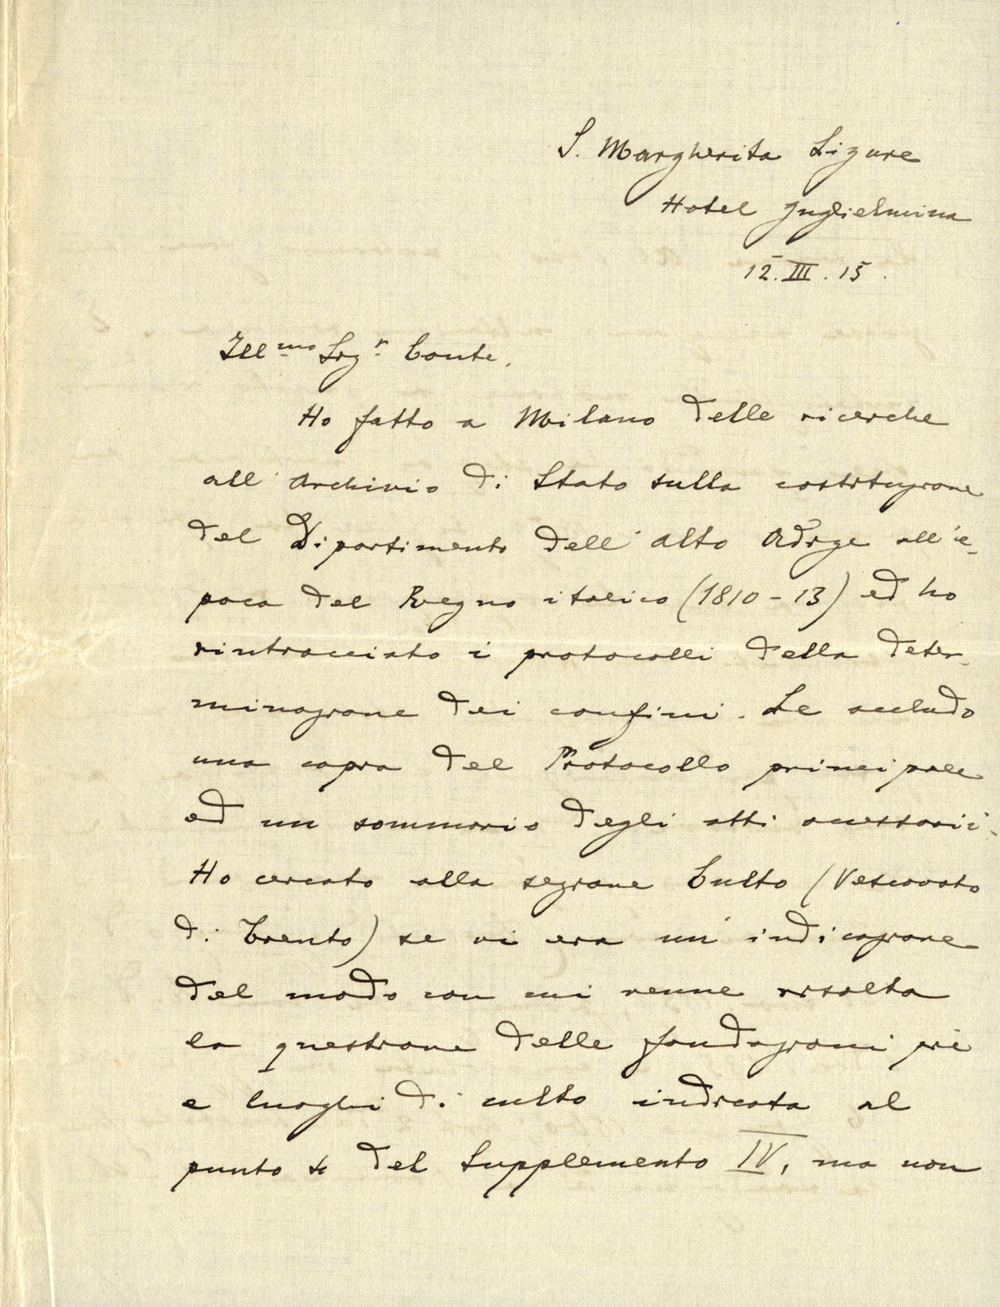 S. Margherita Ligure
Hotel Guglielmina
12. III. 15.
Ill.mo Sigr. Conte,
Ho fatto a Milano delle ricerche
all' Archivio di Stato sulla costituzione
del Dipartimento dell' Alto Adige all' e-
poca del Regno italico (1810-13) ed ho
rintracciato i protocolli della deter-
minazione dei confini. Le accludo
una copia del Protocollo principale
ed un sommario degli atti accessorii.
Ho cercato alla sezione Culto (Vescovato
di Trento) se vi era un' indicazione
del modo con cui venne risolta
la questione delle fondazioni pie
e luoghi di culto indicata al
punto del Supplemento IV, ma non